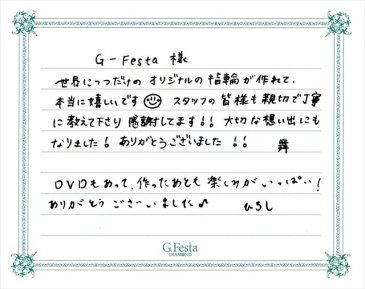 G-Festa 様
世界に1つだけの オリジナルの指輪が作れて、
本当に嬉しいです スタッフの皆様も親切で丁寧
に教えて下さり 感謝してます!! 大切な想い出にも
なりました! ありがとうございました!!
DVDもあって、作ったあとも楽しみがいっぱい!
ありがとうございました♪
G.Festa
DIAMOND